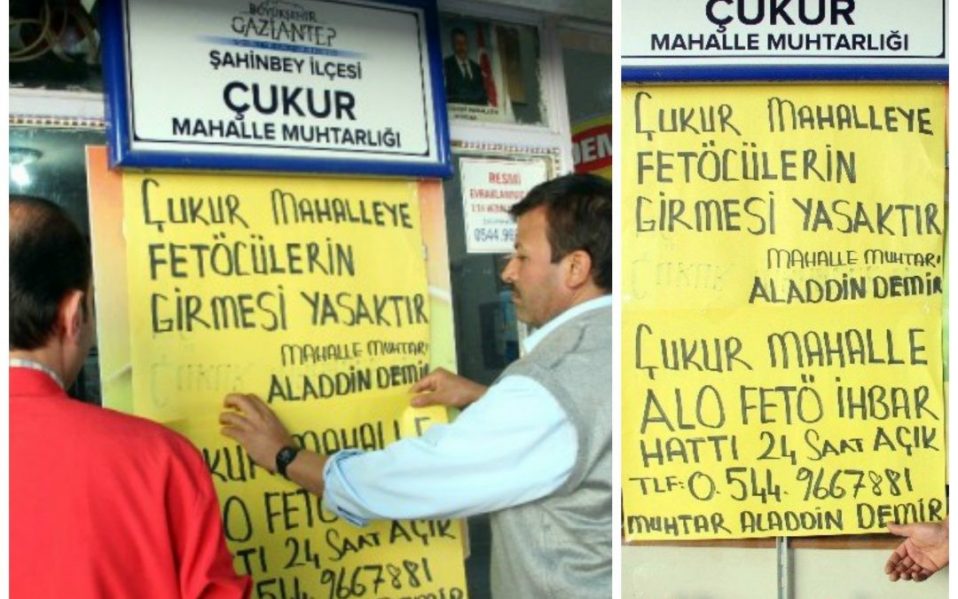 BÜYÜKŞEHİR
GAZİANTEP
ŞAHİNBEY İLÇESİ
ÇUKUR
MAHALLE MUHTARLIĞI
RESMİ
0544.966
DEM
ÇUKUR MAHALLEYE
FETÖCÜLERİN
GİRMESİ YASAKTIR
MAHALLE MUHTARI
ALADDİN DEMİR
ÇUKUR MAHALLE
ALO FETÖ
HATTI 24 SAAT AÇIK
544.9667881
ÇUKUR
MAHALLE MUHTARLIĞI
ÇUKUR MAHALLEYE
FETÖCÜLERİN
GİRMESİ YASAKTIR
MAHALLE MUHTARI
ALADDİN DEMİR
ÇUKUR MAHALLE
ALO FETÖ İHBAR
HATTI 24 SAAT AÇIK
TLF: 0.544.9667881
MUHTAR ALADDİN DEMİR